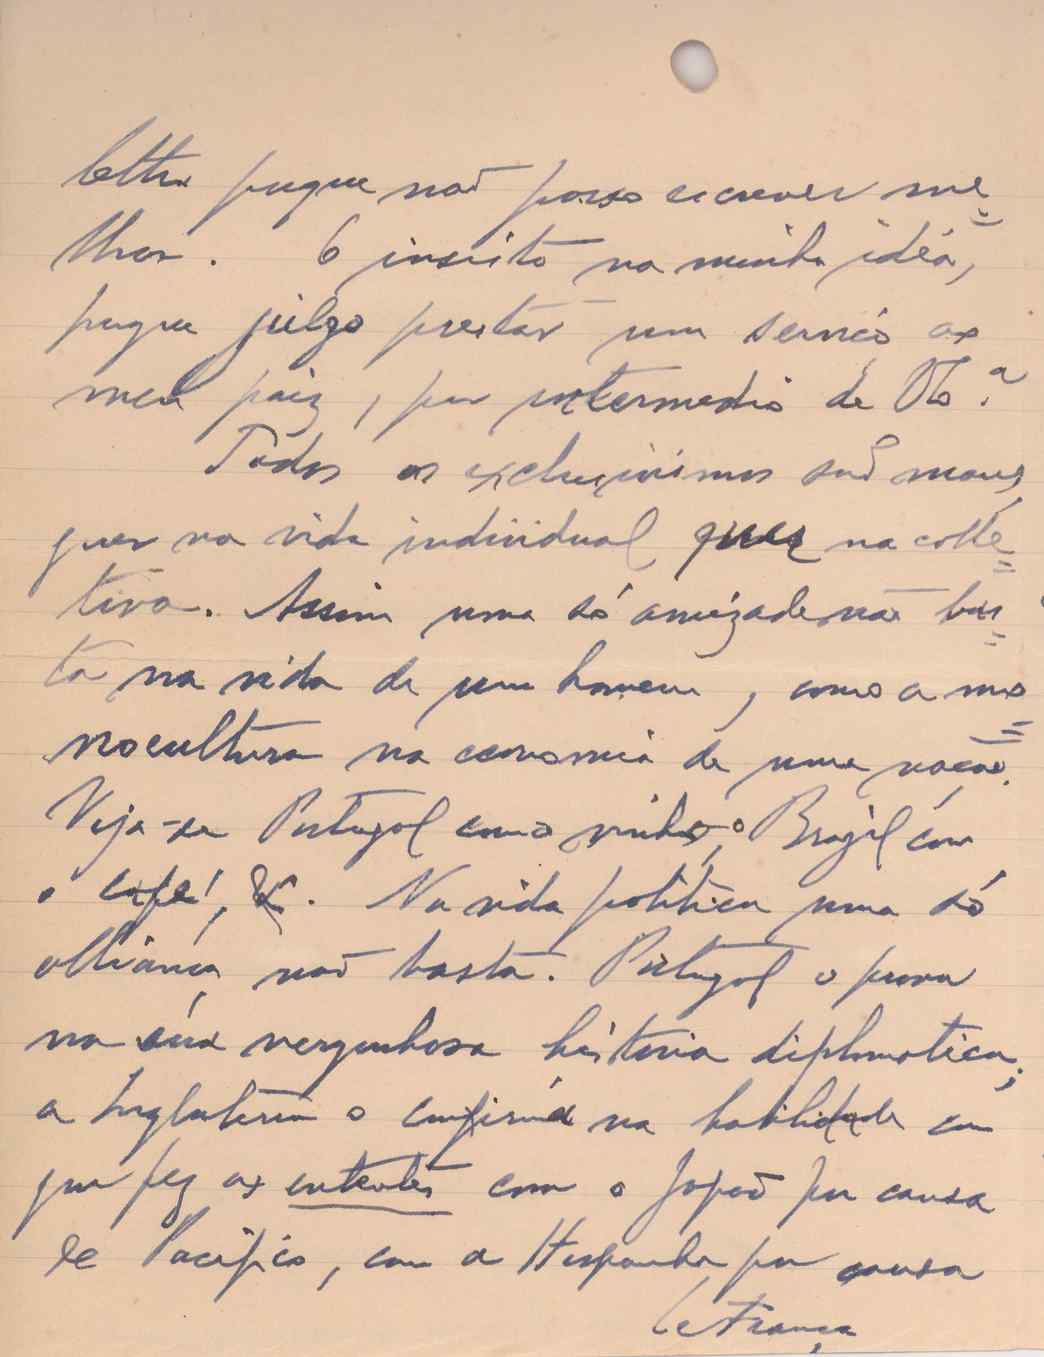 lettra porque não posso escrever me=
lhor. E insisto na minha idéa,
porque julgo prestar um serviço ao
meu paiz, por intermedio de
Todos os exclusivismos são maus,
quer na vida individual quer na colle=
tiva. Assim uma só amizade não bas=
ta na vida de um homem, como a mo=
nocultura na economia de uma nação.
Veja-se Portugal com o vinho, o Brazil com
o café, &. Na vida politica uma só
alliança não basta. Portugal o prova
na sua vergonhosa historia diplomatica;
a Inglaterra o confirma na habilidade com
que fez as ententes com o Japão por causa
de Pacifico, com a Hespanha por causa
de França